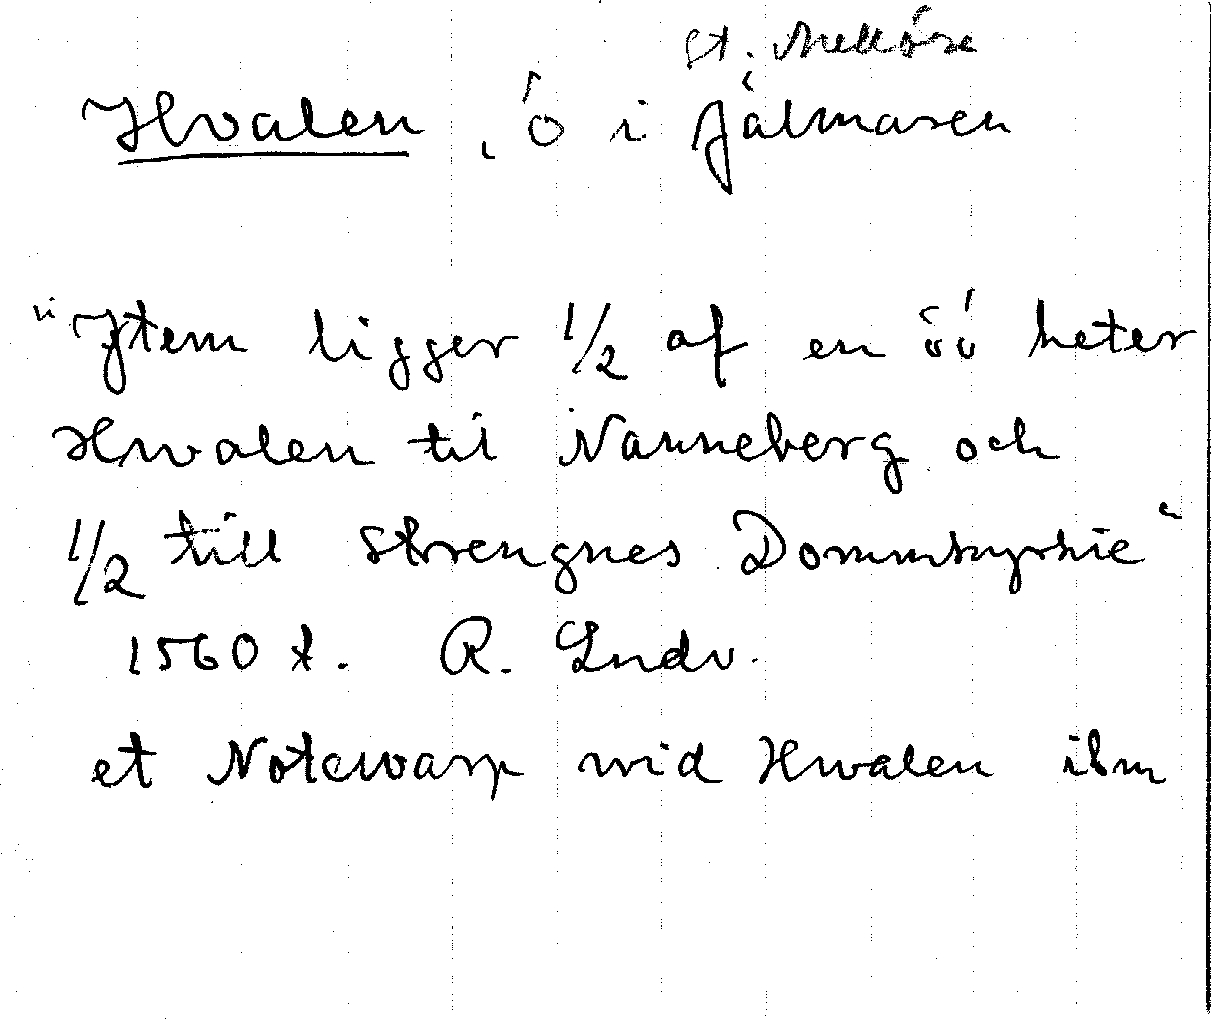 St. Mellösa
Hvalen, ö i Hjälmaren
"Jtem ligger 1/2 af en öö heter
Hwalen til Nanneberg och
1/2 till Strengnes Dommkyrkie"
1560 t. R. Lndv.
et Notewarp wid Hwalen ibm